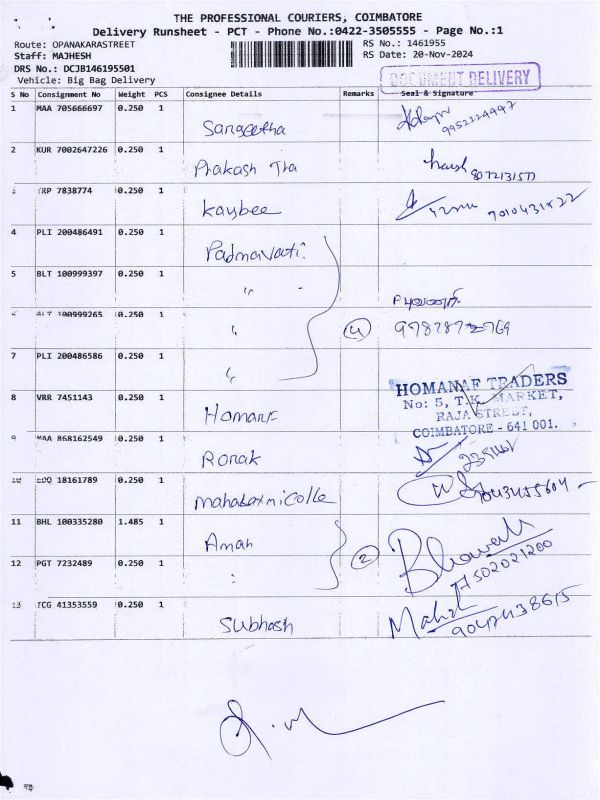 THE PROFESSIONAL COURIERS, COIMBATORE
Delivery Runsheet - PCT - Phone No.:0422-3505555 - Page No.:1
Route: OPANAKARASTREET
RS No.: 1461955
Staff: MAJHESH
RS Date: 20-Nov-2024
DRS No.: DCJB146195501
Vehicle: Big Bag Delivery
DOCUMENT DELIVERY
S No Consignment No Weight PCS Consignee Details Remarks Seal & Signature
1 MAA 705666697 0.250 1 Sangeetha 9952224447
2 KUR 7002647226 0.250 1 Prakash Tra harish
7838774 0.250 1 Kaybee
4 PLI 200486491 0.250 1 Padmavati
5 BLT 100999397 0.250 1 "
100999265 0.250 1 " 4
7 PLI 200486586 0.250 1 "
HOMANAF TRADERS
No: 5, T.K. MARKET,
RAJA STREET,
COIMBATORE - 641 001.
8 VRR 7451143 0.250 1 Homanf
9 MAA 868162549 0.250 1 Ronak
10 EDQ 18161789 0.250 1 Mahalaxmi Colle
11 BHL 100335280 1.485 1 Aman 2
12 PGT 7232489 0.250 1 "
13 TCG 41353559 0.250 1 Subhash